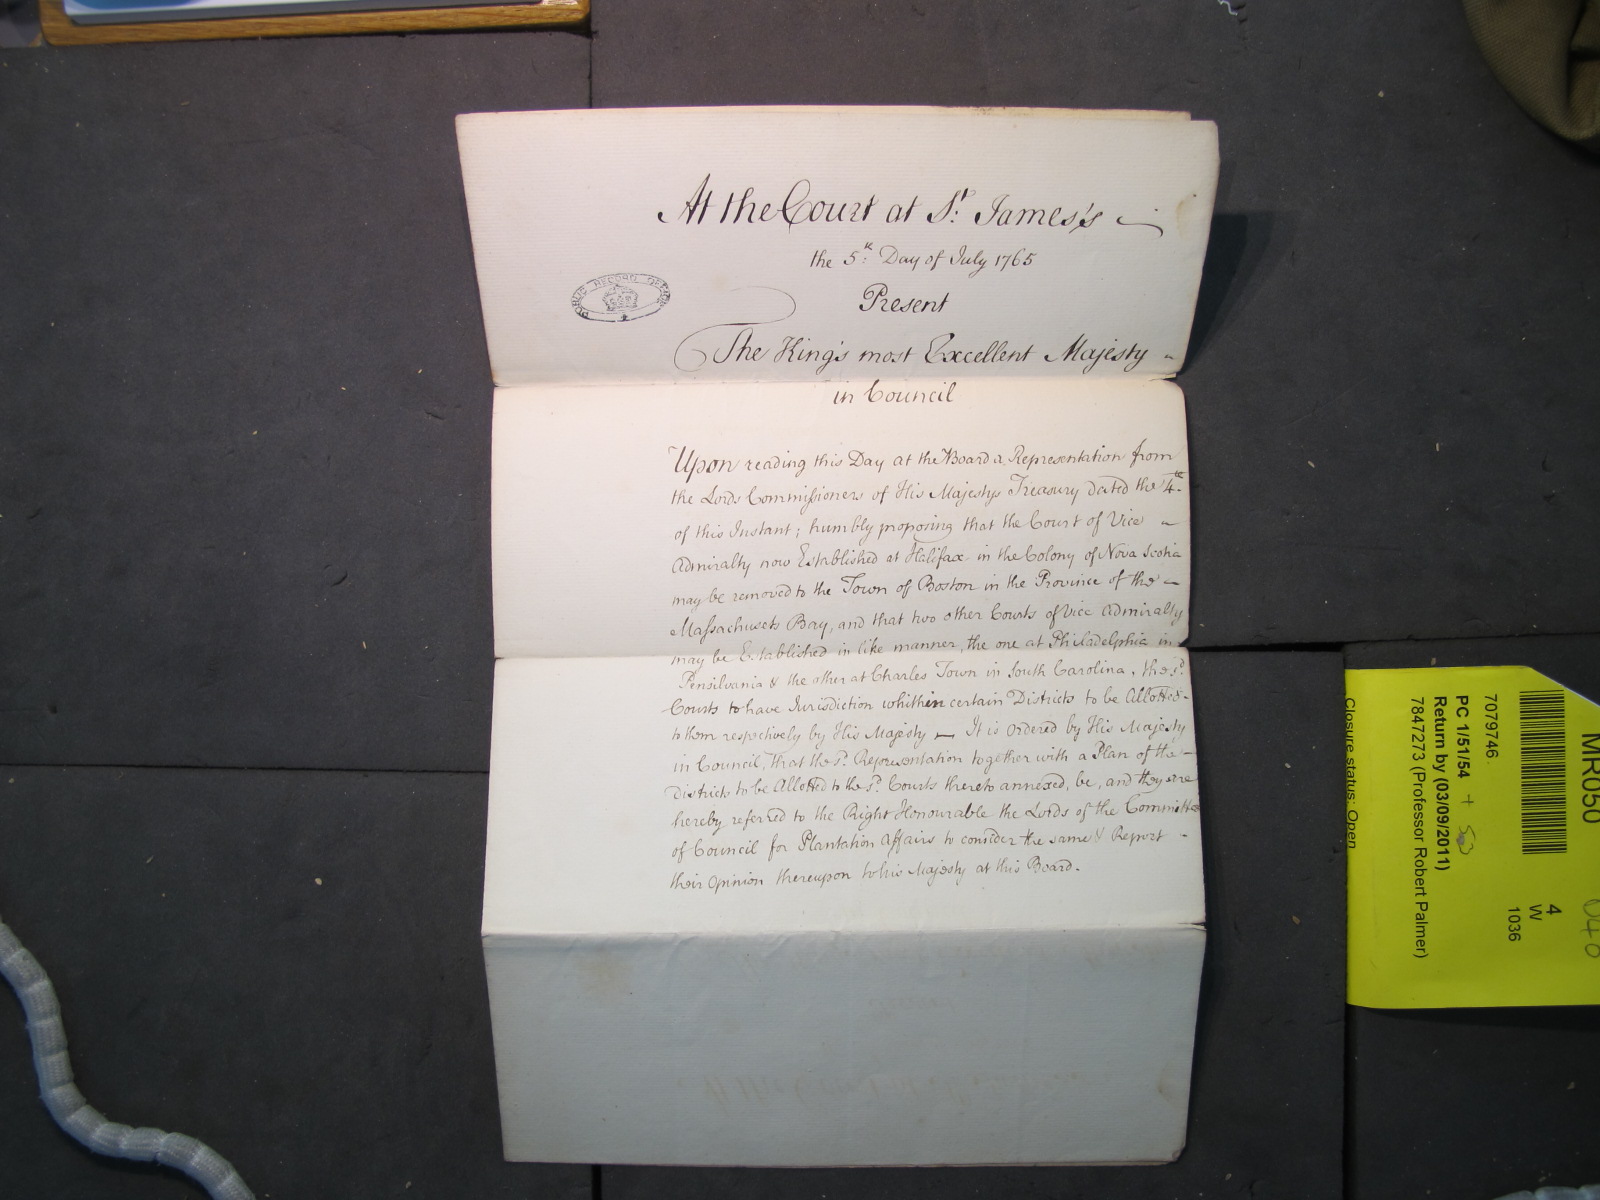 At the Court at St. James's
the 5th. Day of July 1765
Present
The King's most Excellent Majesty
in Council
PUBLIC RECORD OFFICE
Upon reading this Day at the Board a Representation from
the Lords Commissioners of His Majestys Treasury dated the 4th.
of this Instant; humbly proposing that the Court of Vice
Admiralty now Established at Halifax in the Colony of Nova Scotia
may be removed to the Town of Boston in the Province of the
Massachusets Bay, and that two other Courts of Vice Admiralty
may be Established in like manner, the one at Philadelphia in
Pensilvania & the other at Charles Town in South Carolina, the sd.
Courts to have Jurisdiction whithin certain Districts to be Allotted
to them respectively by His Majesty — It is ordered by His Majesty
in Council, that the sd. Representation together with a Plan of the
Districts to be Allotted to the sd. Courts thereto annexed, be, and they are
hereby referred to the Right Honourable the Lords of the Committee
of Council for Plantation Affairs to consider the same & Report
their Opinion thereupon to his Majesty at this Board.
MR050
040
4
W
1036
7079746
PC 1/51/54 +
Return by (03/09/2011)
7847273 (Professor Robert Palmer)
Closure status: Open